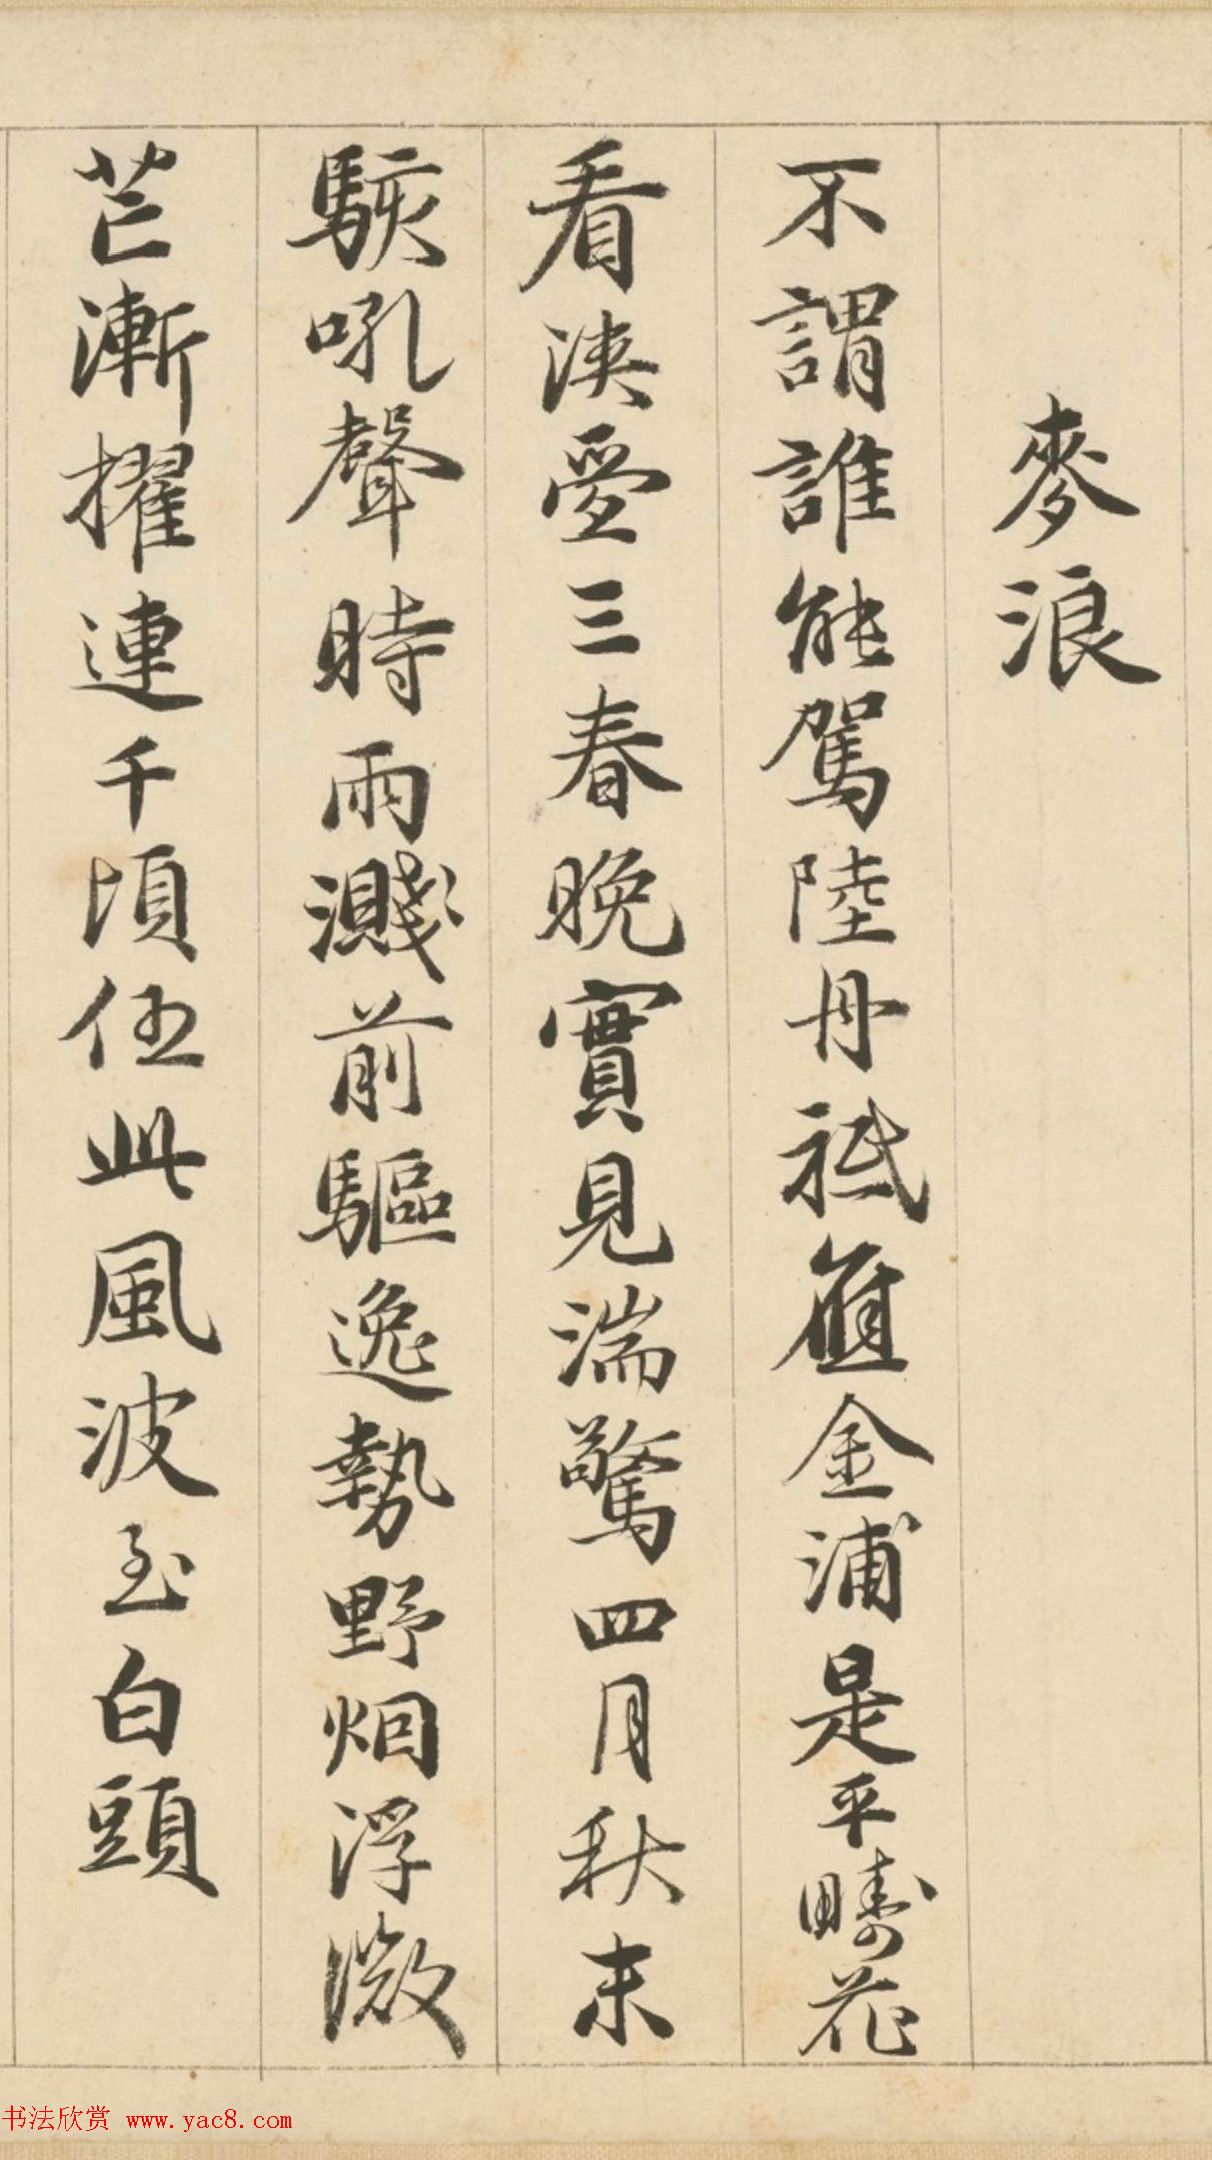 麥浪
不謂誰能駕陸舟祗應金浦是平疇花
看浹愛三春晚實見湍驚四月秋未
駭吼聲時雨濺前驅逸勢野烟浮微
芒漸擢連千頃任此風波至白頭
书法欣赏 www.yac8.com